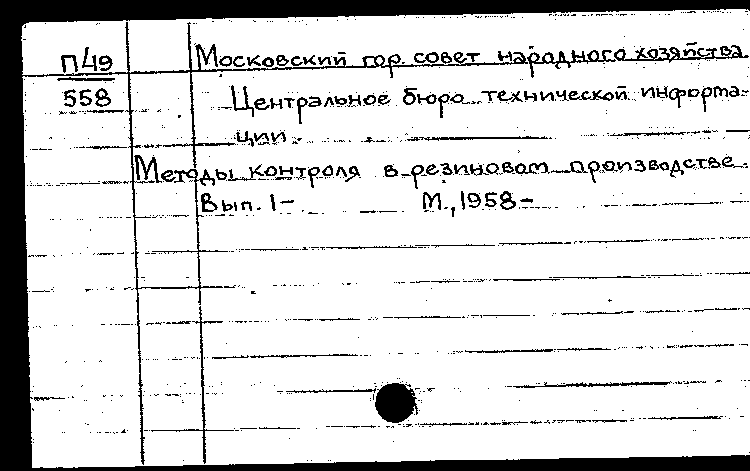 П49 Московский гор. совет народного хозяйства.
558 Центральное бюро технической информа-
ции.
Методы контроля в резиновом производстве.
Вып. 1- М., 1958-